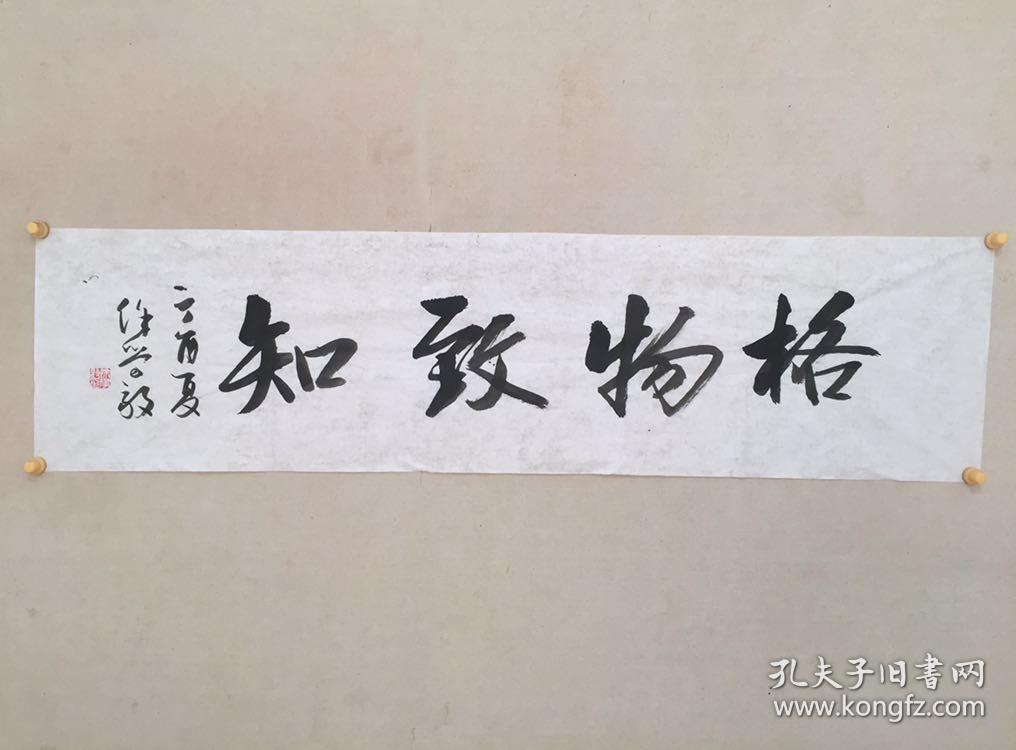 格物致知
辛酉夏
徐学毅
孔夫子旧書网
www.kongfz.com